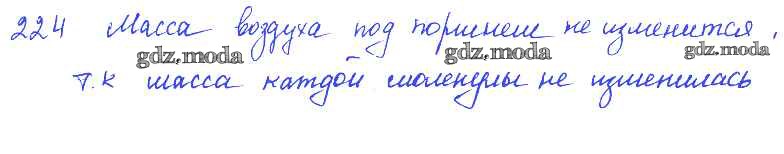 224 Масса воздуха под поршнем не изменится,
gdz.moda gdz.moda gdz.moda
т.к масса каждой молекулы не изменилась